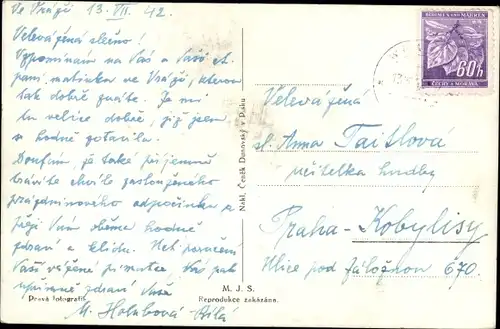 Ve Vráži 13. VII. 42.
Velevážená slečno!
Vzpomínám na Vás a Vaší
paní matinku ve Vráži, kterou
tak dobře znáte. Je mi
tu velice dobře, již jsem
se hodně zotavila.
Doufám, že také příjemně
trávíte chvíle zaslouženého
prázdninového odpočinku a
přeji Vám oběma hodně
zdraví a klidu.
Vaší vážené
zdraví Vaše
M. Holubová
Pravá fotografie
M. J. S.
Reprodukce zakázána.
Nakl. Čeněk Danovský v Písku
BÖHMEN UND MÄHREN
60h
ČECHY A MORAVA
Velevážená
sl. Anna Taitlová
učitelka hudby
Praha-Kobylisy
Ulice pod 670.